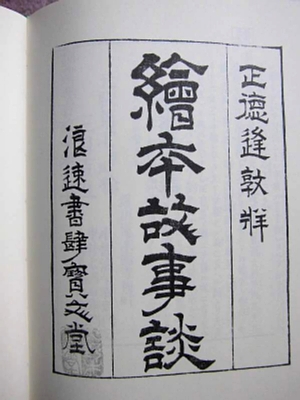 正德逢敦牂
繪本故事談
浪速書肆寶文堂